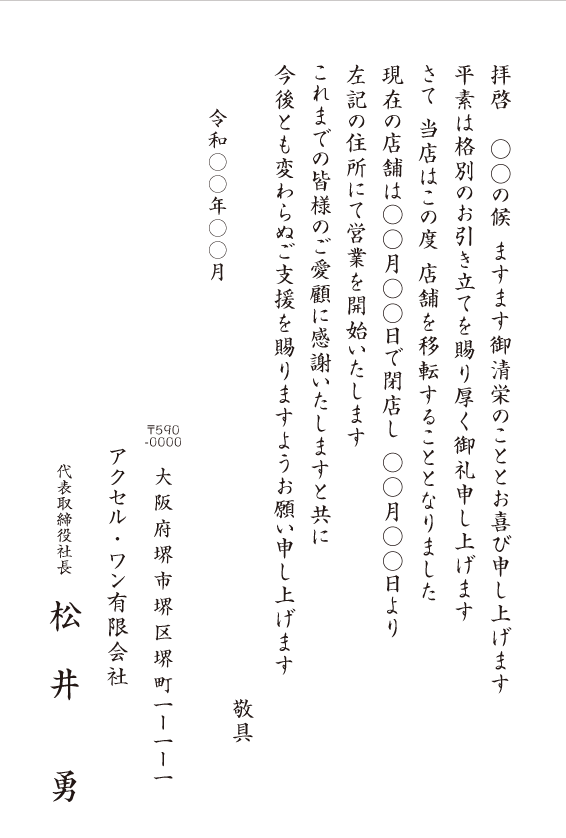 拝啓　〇〇の候　ますます御清栄のこととお喜び申し上げます
平素は格別のお引き立てを賜り厚く御礼申し上げます
さて　当店はこの度　店舗を移転することとなりました
現在の店舗は〇〇月〇〇日で閉店し　〇〇月〇〇日より
左記の住所にて営業を開始いたします
これまでの皆様のご愛顧に感謝いたしますと共に
今後とも変わらぬご支援を賜りますようお願い申し上げます
敬具
令和〇〇年〇〇月
〒590
-0000
大阪府堺市堺区堺町一ー一ー一
アクセル・ワン有限会社
代表取締役社長　松井　勇